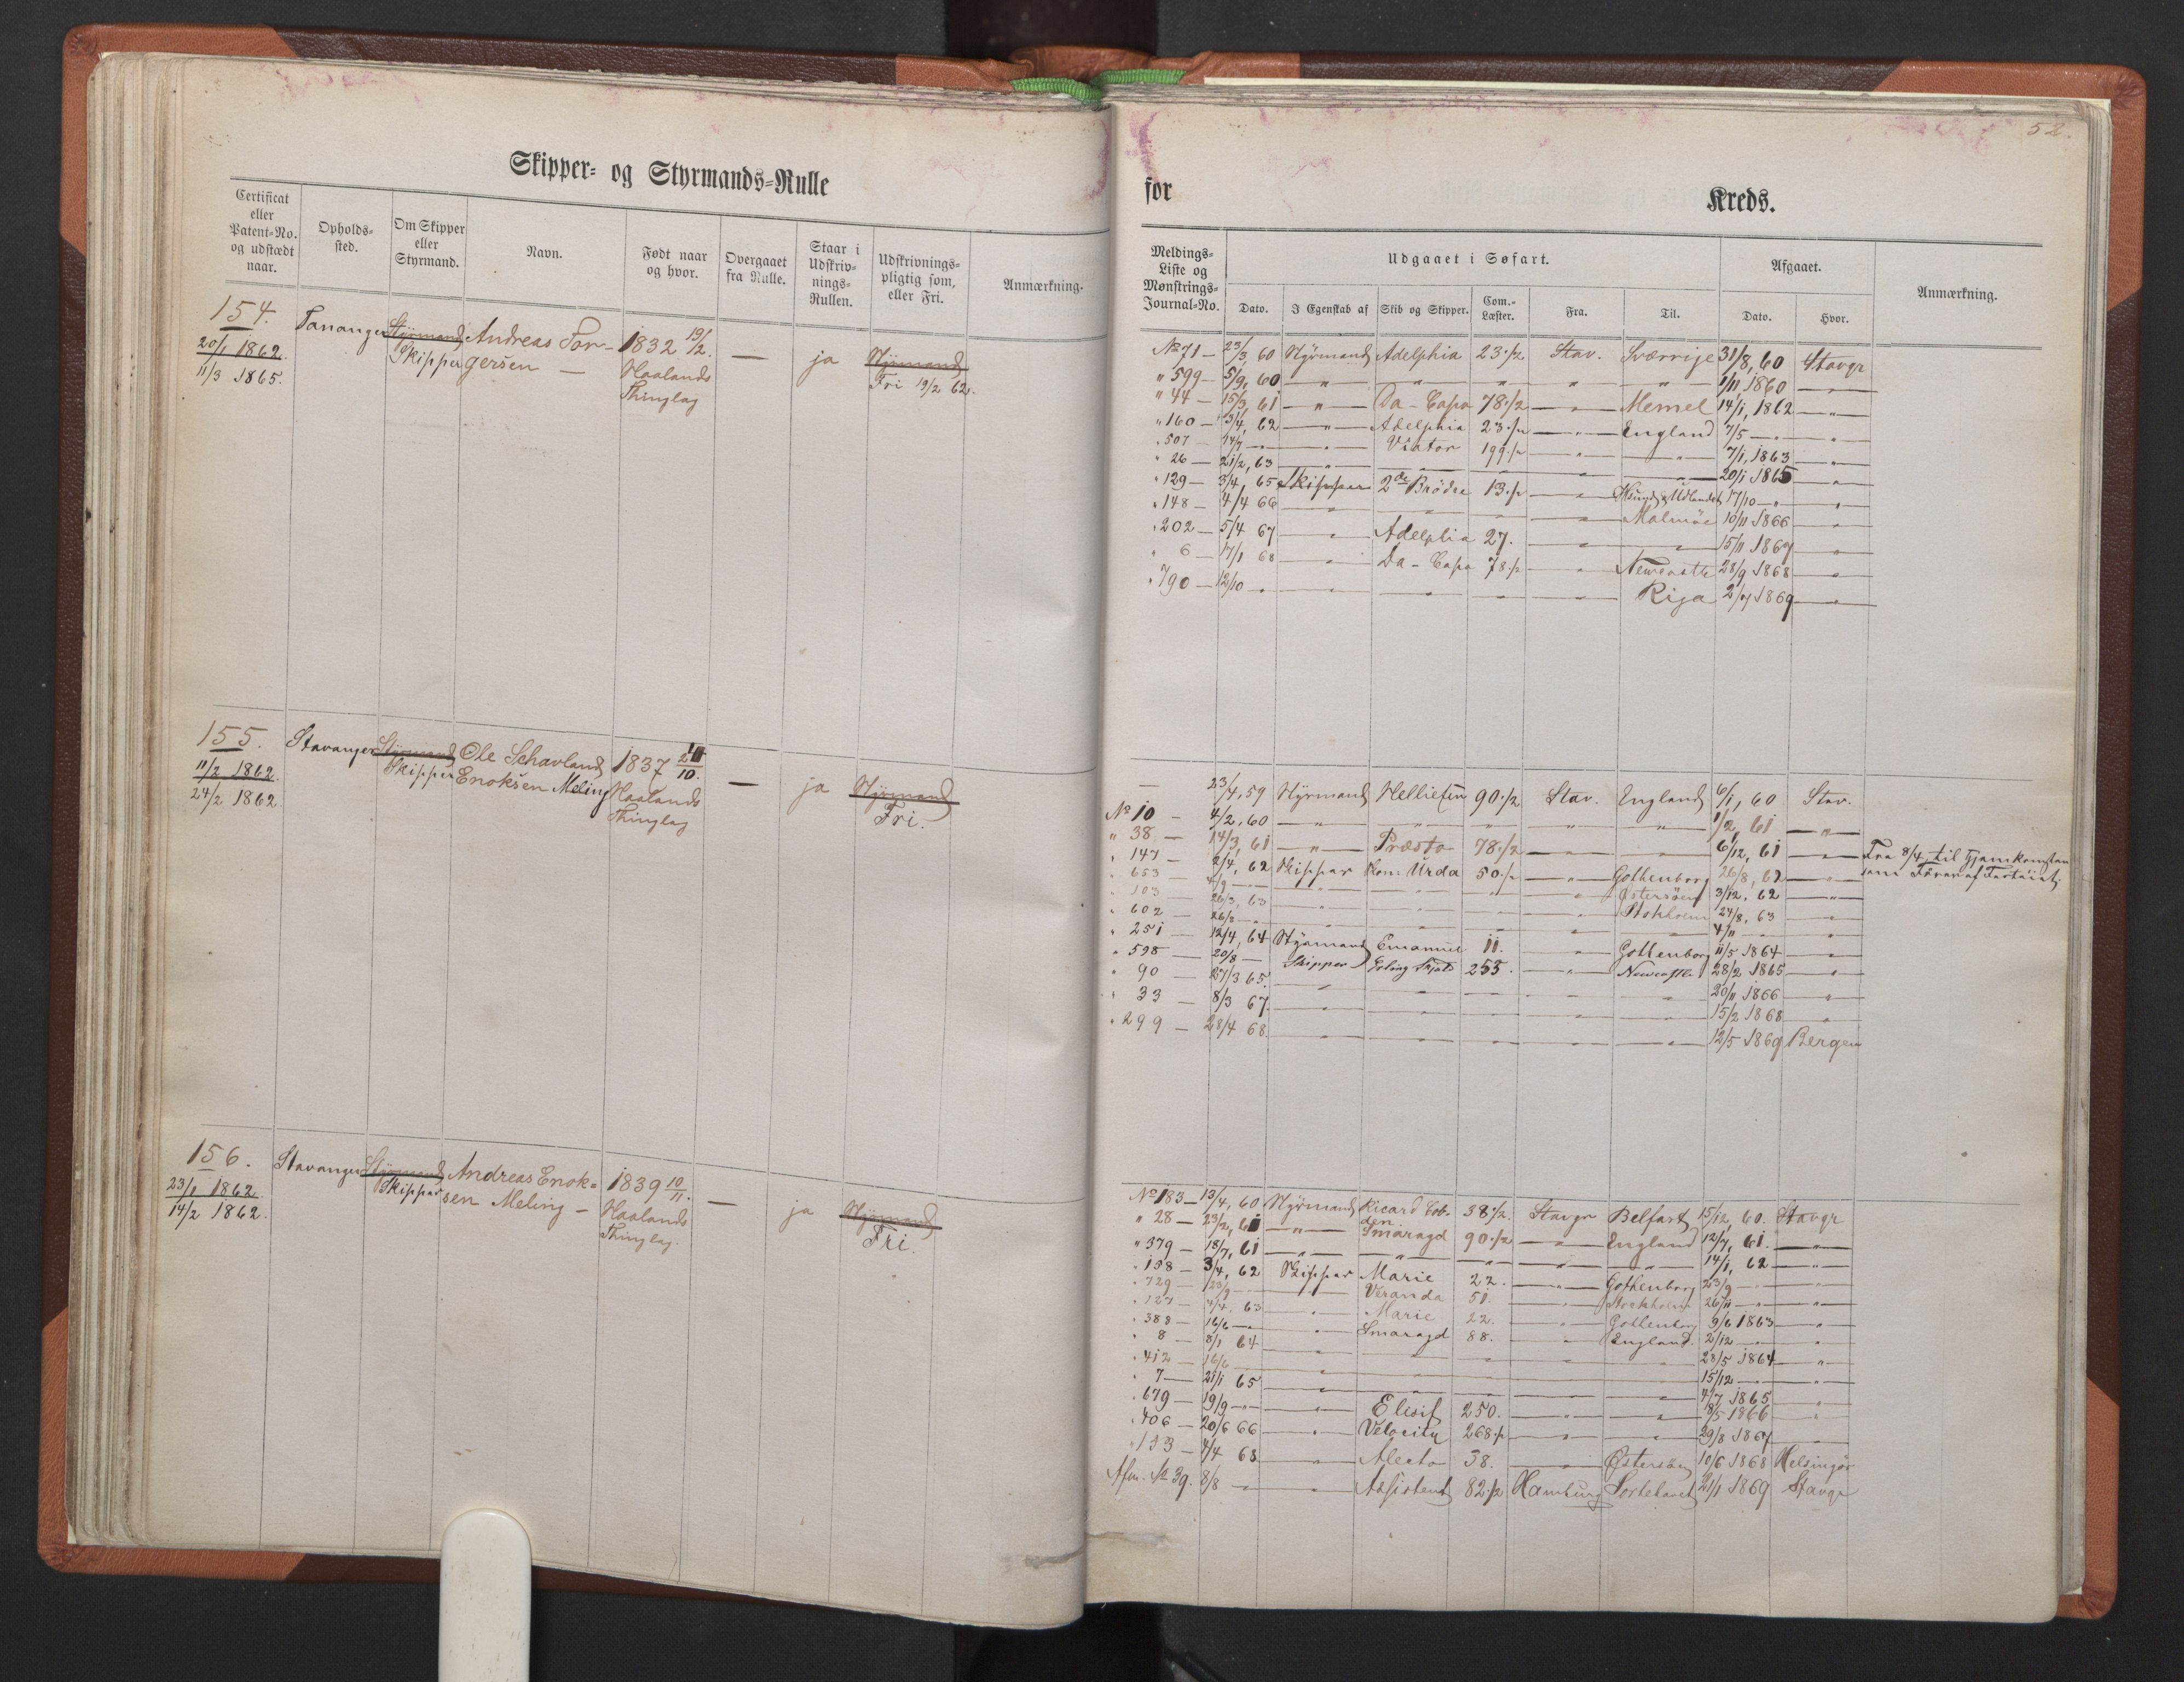 Skipper- og Styrmands-Rulle
Certificat eller Patent-No. og udstædt naar. Opholds-sted. Om Skipper eller Styrmand. Navn. Født naar og hvor. Overgaaet fra Rulle. Staar i Udskriv-nings-Rullen. Udskrivnings-pligtig som, eller Fri. Anmærkning.
154. Tananger Styrmand Andreas Tor- 1832 19/2. — ja Styrmand
20/1 1862. Skipper gersen — Haalands Fri 19/2 62.
11/3 1865. Thinglag
155. Stavanger Styrmand Ole Schavland 1837 10. — ja Styrmand
11/2 1862. Skipper Enoksen Meling Haalands Fri.
24/2 1862. Thinglag
156. Stavanger Styrmand Andreas Enok= 1839 10/11. — ja Styrmand
23/1 1862. Skipper sen Meling — Haalands Fri.
14/2 1862. Thinglag.
52.
for Kreds.
Meldings-Liste og Mønstrings-Journal-No. Udgaaet i Søfart. Afgaaet. Anmærkning.
Dato. I Egenskab af Skib og Skipper. Com.-Læster. Fra. Til. Dato. Hvor.
No 71 — 23/3, 60 Styrmand Adelphia 23 1/2 Stav. Sværrige 31/8, 60 Stavgr
" 599 — 5/9, 60 — " — " — " — " — " 1/11 1860 — " —
" 44 — 15/3, 61 — " — Da-Capo 78 1/2 — " — Memel 14/1, 1862 — " —
" 160 — 3/4, 62 — " — Adelphia 23 1/2 — " — England 7/5 — " — " —
" 507 — 14/7 — " — Viator 199 1/2 — " — " — 7/1, 1863 — " —
" 26 — 21/2, 63 — " — " — " — " — 20/1 1865 — " —
" 129 — 3/4, 65 Skipper 2de Brödre 13 1/2 — " — Udlandet 17/10 — " — " —
" 148 — 4/4 66 — " — " — " — " — Malmöe 10/11 1866 — " —
" 202 — 5/4 67 — " — Adelphia 27. — " — " — 15/11 1867 — " —
" 6 — 17/1 68 — " — Da-Capo 78 1/2 — " — Newcastle 28/9 1868 — " —
" 790 — 12/10 — " — " — " — " — " — Riga 2/7 1869 — " —
— 23/4, 59 Styrmand 90 1/2 Stav. England 6/1, 60 Stav.
No 10 — 4/2, 60 — " — " — " — " — " 1/2, 61 — " —
" 38 — 14/3, 61 — " — Præsto 78 1/2 — " — " — 6/12, 61 — " — Fra 8/4 til Hjemkomsten
" 147 — 2/4, 62 Skipper Urda 50 1/2 — " — Gothenborg 26/8, 62 — " — som Förer af Fartöiet
" 653 — 4/9 — " — " — " — " — Östersöen 3/12, 62 — " —
" 103 — 26/3, 63 — " — " — " — " — Stokholm 24/8, 63 — " —
" 602 — 26/8 — " — " — " — " — " — 4/11 — " — " —
" 251 — 12/4, 64 Styrmand Emanuel 11. — " — Gottenborg 11/5 1864 — " —
" 598 — 20/8 — Skipper Erling 255. — " — Newcastle 28/2 1865 — " —
" 90 — 27/3 65. — " — " — " — " — " — 20/11 1866 — " —
" 33 — 8/3 67. — " — " — " — " — " — 15/2 1868 — " —
" 299 — 28/4 68. — " — " — " — " — " — 12/5 1869 Bergen
No 183 — 13/4, 60 Styrmand Ricard Cob- 38 1/2. Stavgr Belfast 15/12, 60. Stavgr
den.
" 28 — 23/2, 61 — " — Smaragd 90 1/2 — " — England 12/7, 61. — " —
" 379 — 18/7, 61 — " — " — " — " — " — 14/1, 62 — " —
" 158 — 3/4, 62 Skipper Marie 22. — " — Gothenborg 23/9 — " — " —
" 729 — 23/9 — " — Veranda 51. — " — Stockholm 26/11 — " — " —
" 127 — 4/4, 63 — " — Marie 22. — " — Gottenborg 9/6 1863 — " —
" 388 — 16/6 — " — Smaragd 88. — " — England. 2/12 — " — " —
" 8 — 8/1 64 — " — " — " — " — " — 28/5 1864 — " —
" 412 — 16/6 — " — " — " — " — " — 15/12 — " — " —
" 7 — 21/1 65 — " — " — " — " — " — 4/7 1865 — " —
" 679 — 19/9 — " — Elisif 250. — " — " — 8/5 1866 — " —
" 406 — 20/6 66 — " — Velocity 268 1/2 — " — " — 29/8 1867 — " —
" 153 — 4/4 68 — " — Alecto 38. — " — Östersöen 10/6 1868 Helsingör
Afm. No 39. 8/8 — " — Assistent 82 1/2 Hamburg Sortehavet 21/1 1869 Stavgr